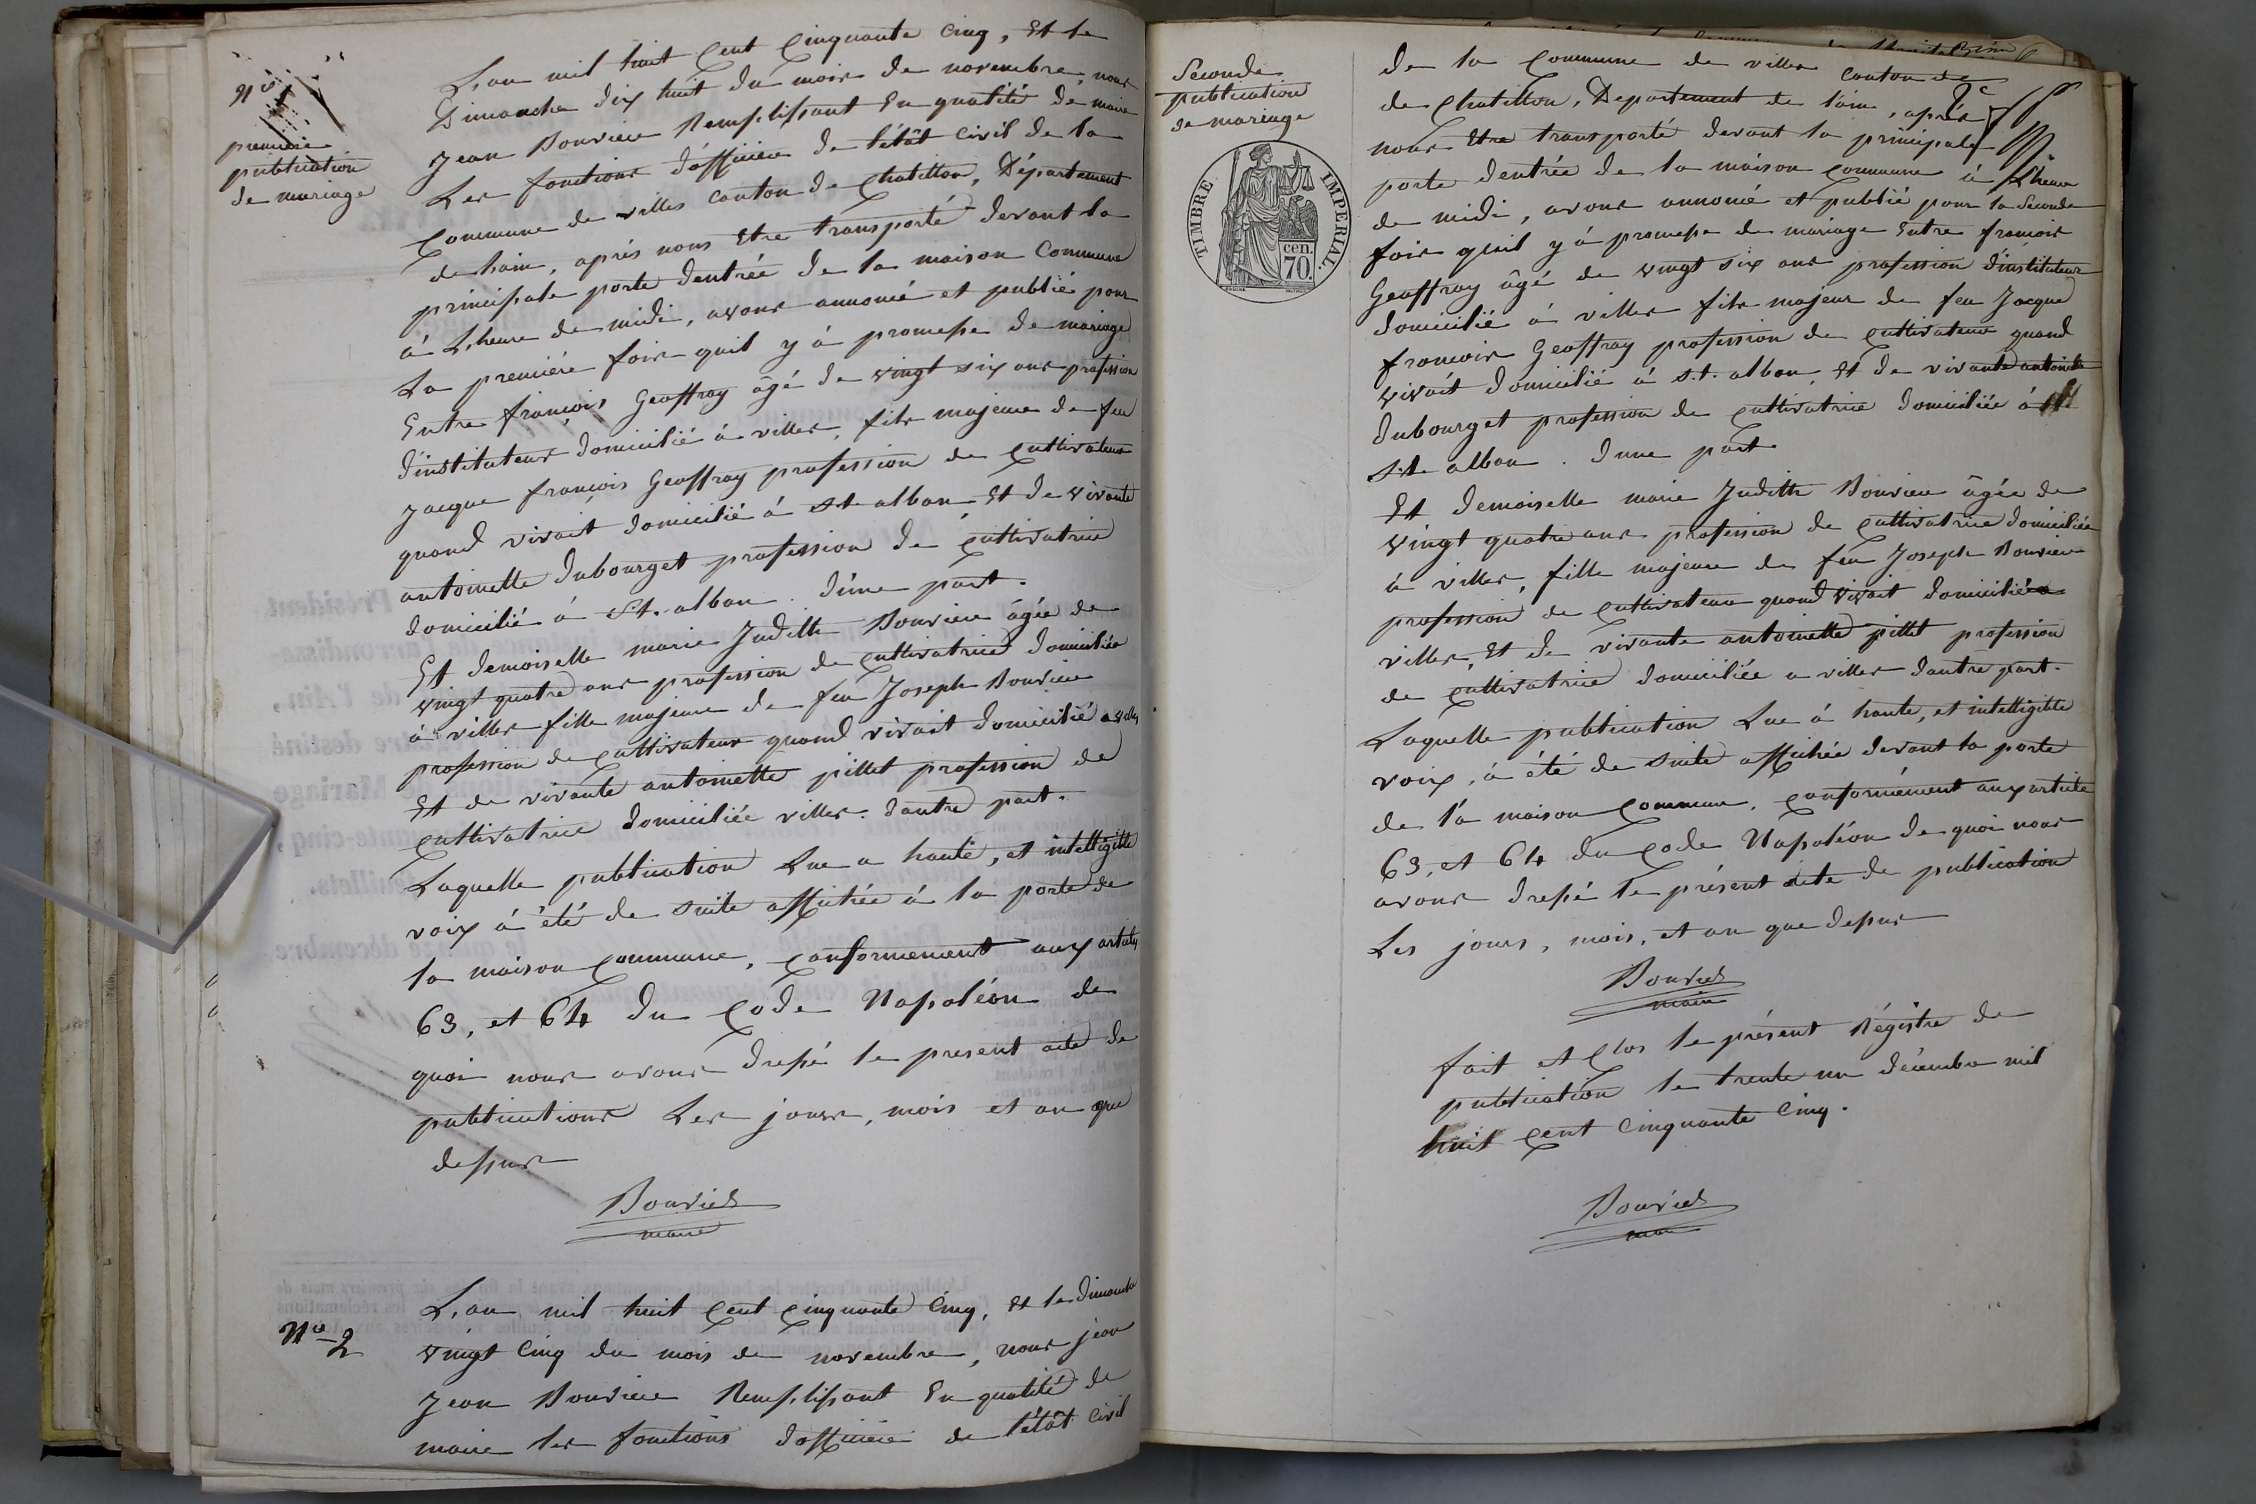 N° 1
première
publication
de mariage
L'an mil huit cent cinquante cinq, Et le
Dimanche dix huit du mois de novembre, nous
Jean Bouvier Remplissant En qualité de maire
Les fonctions d'officier de l'état civil de la
Commune de villes canton de chatillon, Département
de lain, aprés nous Etre transporté devant la
principale porte dentrée de la maison Commune
á L'heure de midi, avons annoncé et publié pour
La premiére fois quil y á promesse de mariage
Entre françois Geoffray âgé de vingt six ans profession
d'instituteur domicilié á villes, fils majeur de feu
Jacque françois Geoffray profession de cultivateur
quand vivait domicilié á St alban Et de vivante
antoinette Dubourget profession de cultivatrice
domicilié á St. alban. d'une part.
Et demoiselle marie Judith Bouvier âgée de
vingt quatre ans profession de cultivatrice domiciliée
á villes fille majeure de feu Joseph Bouvier
profession de cultivateur quand vivait domicilié a villes
Et de vivante antoinette pillet profession de
cultivatrice domiciliée villes. dautre part.
Laquelle publication Lue a haute, et intelligible
voix á été de suite affichée á la porte de
la maison commune, conformement aux articles
63, et 64 du code Napoléon de
quoi nous avons dressé le present acte de
publications Les jours, mois et an que
dessus
Bouvier
maire
N° 2
L'an mil huit cent cinquante cinq, Et le dimanche
vingt cinq du mois de novembre, nous jean
Jean Bouvier Remplissant En qualité de
maire les fonctions d'officier de l'état civil
Seconde
publication
de mariage
TIMBRE IMPERIAL.
cen.
70
de la commune de villes canton de
de chatillon, Departement de l'ain, aprés
nous Etre transporté devant la principale
porte dentrée de la maison commune á L'heure
de midi, avons annoncé et publié pour la Seconde
fois quil y á promesse de mariage Entre francois
Geoffray âgé de vingt six ans profession d'instituteur
domicilié á villes fils majeur de feu Jacque
francois Geoffray profession de cultivateur quand
vivait domicilié á S.t. alban, Et de vivante antoinette
dubourget profession de cultivatrice domiciliée á
St. alban. dune part
Et demoiselle marie Judith Bouvier âgée de
vingt quatre ans profession de cultivatrice domiciliée
á villes, fille majeure de feu Joseph Bouvier
profession de cultivateur quand vivait domiciliée a
villes, Et de vivante antoinette pillet profession
de cultivatrice domiciliée a villes dautre part.
Laquelle publication Lue á haute, et intelligible
voix, á été de suite affichée devant la porte
de lá maison commune, conformément aux article
63, et 64 du code Napoléon de quoi nous
avons dressé le présent acte de publication
Les jours, mois, et an que dessus
Bouvier
maire
fait et clos le présent Régistre de
publication le trente un décembre mil
huit cent cinquante cinq.
Bouvier
maire